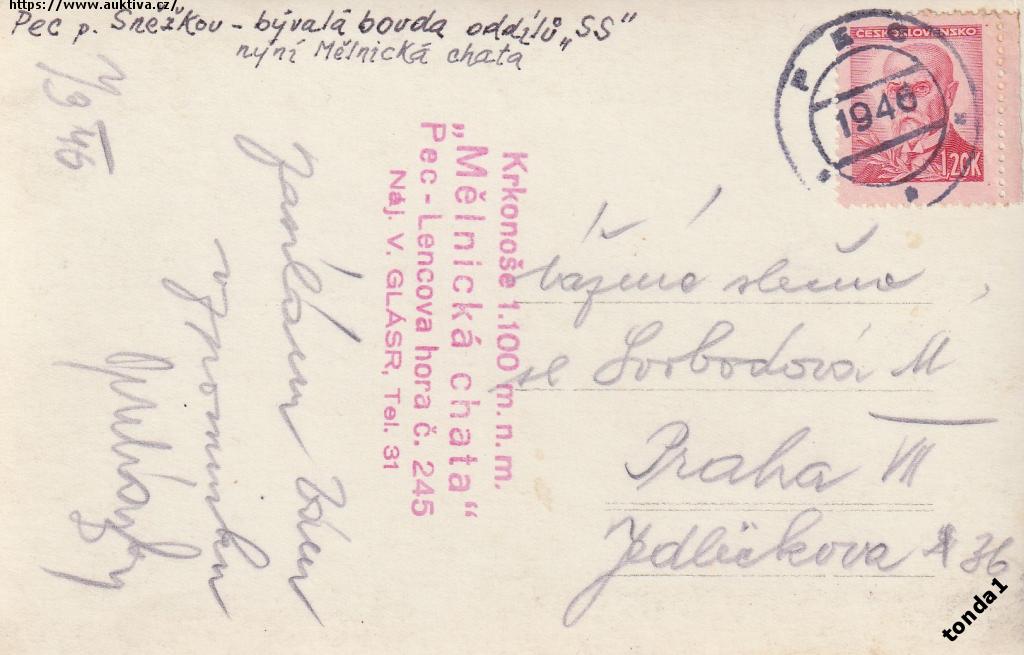 https://www.auktiva.cz/
Pec p. Sněžkou - bývalá bouda oddílů „SS"
nyní Mělnická chata
ČESKOSLOVENSKO
1,20K
PEC
1946
/9 46
Krkonoše 1.100 m. n. m.
„Mělnická chata"
Pec - Lencova hora č. 245
Náj. V. GLÁSR, Tel. 31
Zasílám Vám
vzpomínku
Vážená slečna
sl Svobodová M
Praha VII
Jedličkova 36
tonda1